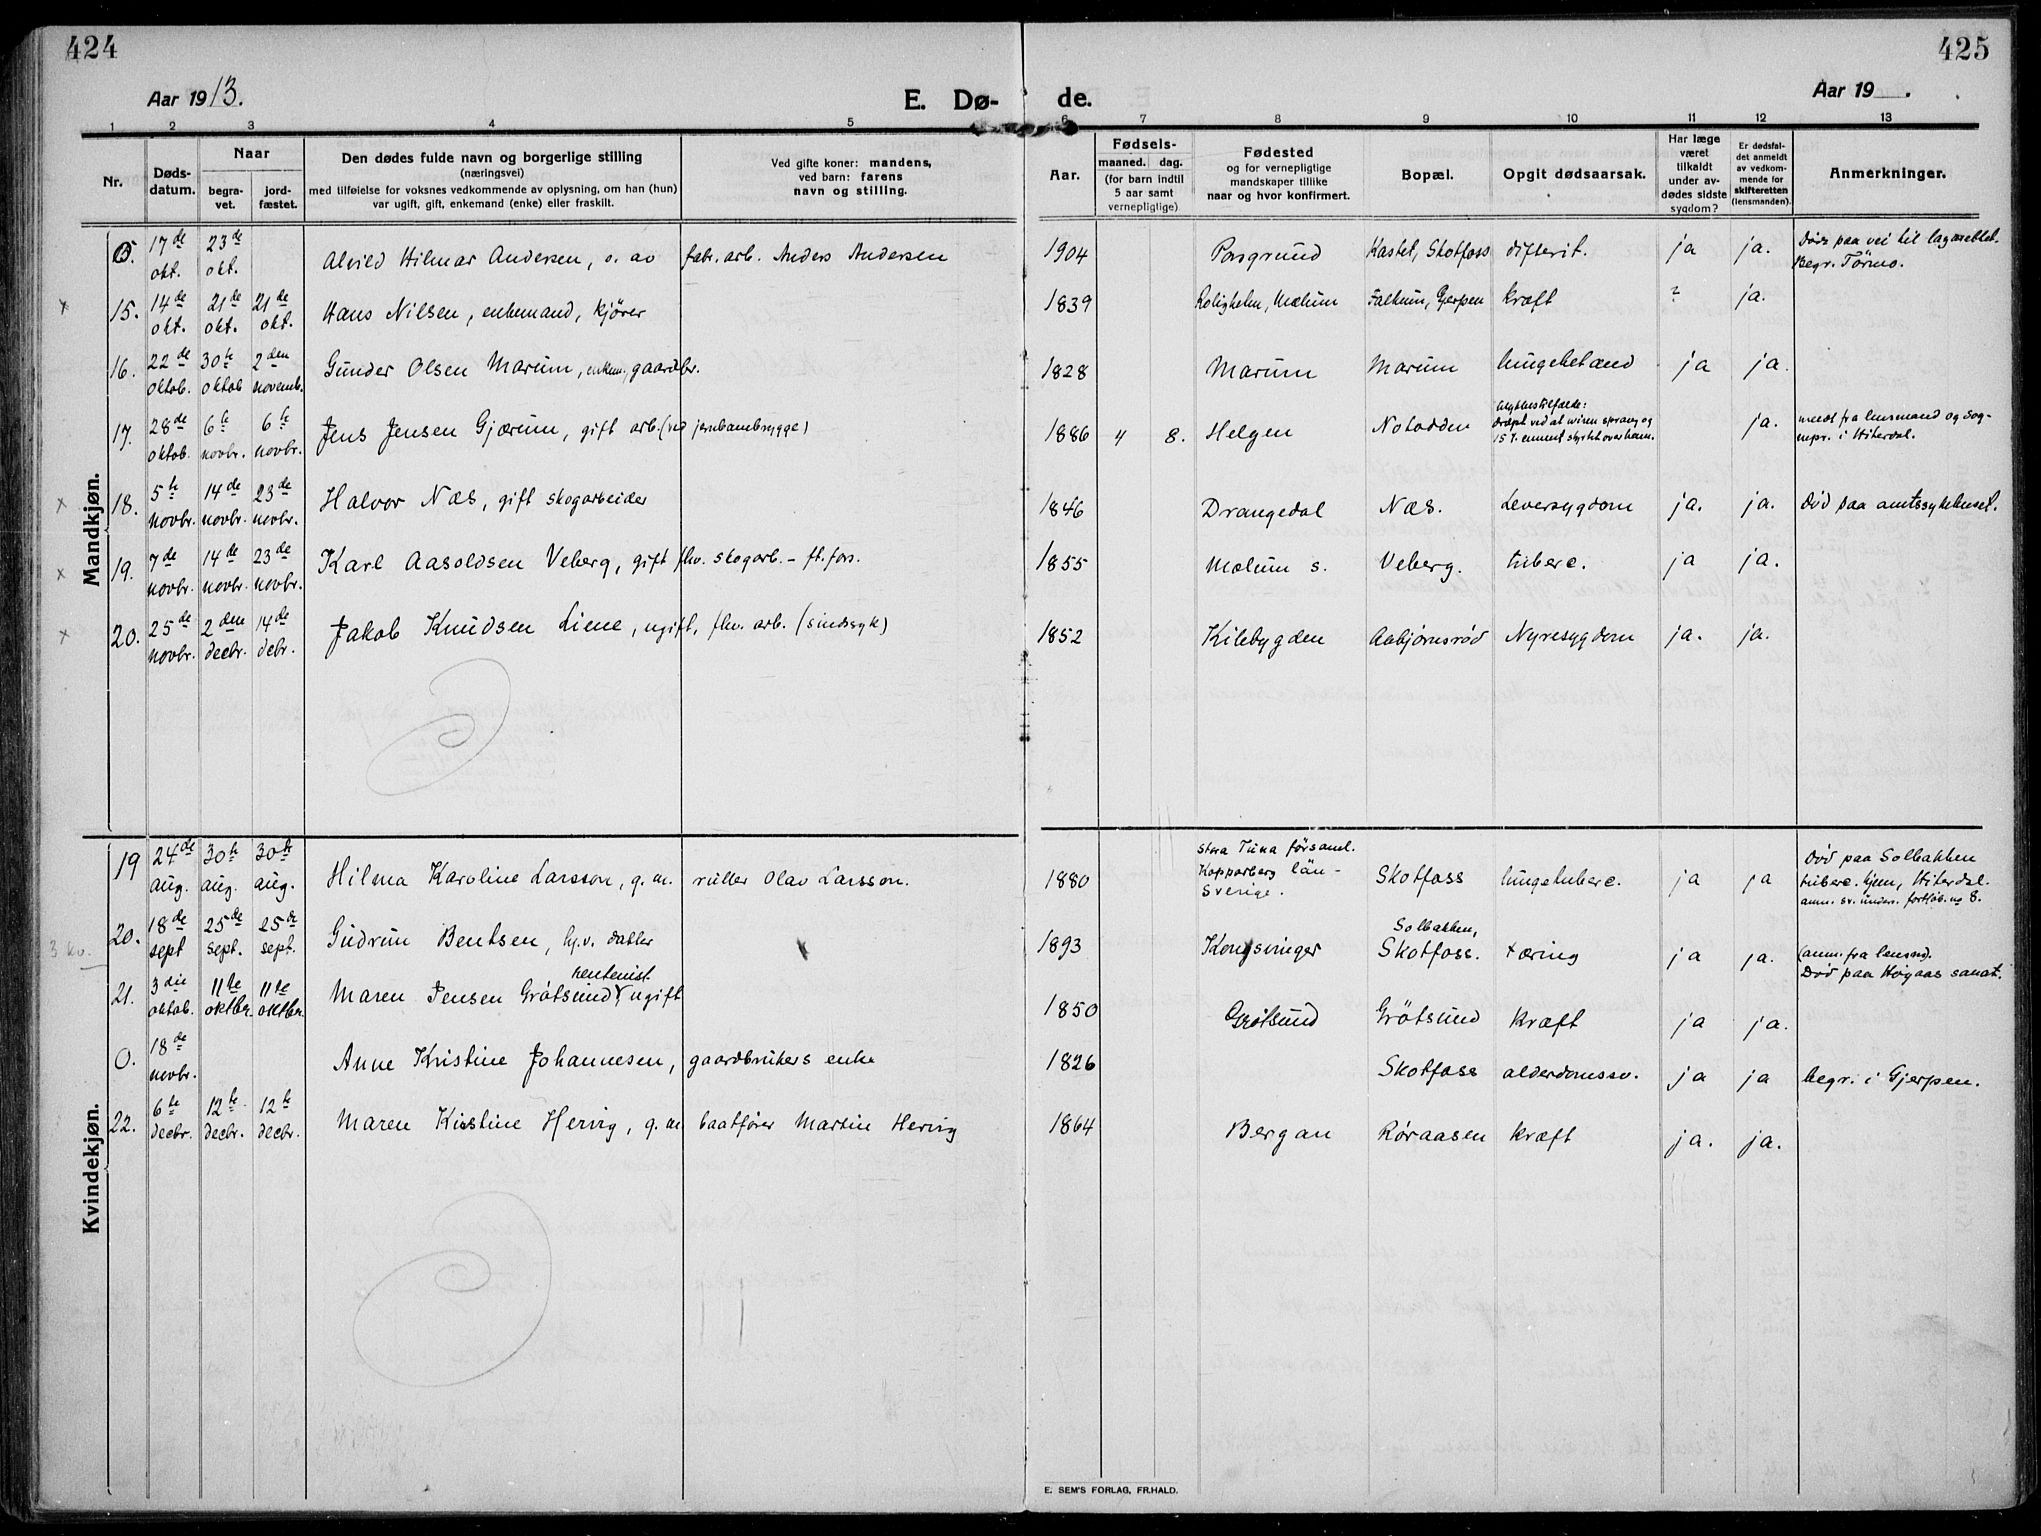 424
425
Aar 1913.
E. Dø-
de.
Aar 19 .
1 2 3 4 5 6 7 8 9 10 11 12 13
Nr.
Døds-
datum.
Naar
begra-
vet.
jord-
fæstet.
Den dødes fulde navn og borgerlige stilling
(næringsvei)
med tilføielse for voksnes vedkommende av oplysning, om han (hun)
var ugift, gift, enkemand (enke) eller fraskilt.
Ved gifte koner: mandens,
ved barn: farens
navn og stilling.
Aar.
Fødsels-
maaned. dag.
(for barn indtil
5 aar samt
vernepligtige)
Fødested
og for vernepligtige
mandskaper tillike
naar og hvor konfirmert.
Bopæl.
Opgit dødsaarsak.
Har læge
været
tilkaldt
under av-
dødes sidste
sygdom?
Er dødsfal-
det anmeldt
av vedkom-
mende for
skifteretten
(lensmanden).
Anmerkninger.
Mandkjøn.
0. 17de okt. 23de okt. Alvild Hilmar Andersen, s. av fabr. arb. Anders Andersen 1904 Porsgrund Kastet, Skotfoss difterit. ja ja. Døde paa vei til lazarettet. Begr. Tørmo.
x 15. 14de okt. 21de okt. 21de okt. Hans Nilsen, enkemand, kjører 1839 Roligheten, Mælum Falkum, Gjerpen kræft ? ja.
16. 22de oktob. 30te oktob 2den novemb. Gunder Olsen Marum, enkem., gaardbr. 1828 Marum Marum lungebetænd ja ja.
17. 28de oktob. 6te novbr. 6te novbr. Jens Jensen Gjærum, gift arb. (ved jernbanebrygge) 1886 4 8. Helgen Notodden ulykkestilfælde: dræpt ved at wiren sprang og 15 T. emnet styrtet over ham. ja. medt fra lensmand og sog- nepr. i Hiterdal.
x 18. 5te novbr. 14de novbr. 23de novbr. Halvor Næs, gift skogarbeider 1846 Drangedal Næs. Leversygdom ja. ja. Død paa amtssykehuset.
x 19. 7de novbr. 14de novbr. 23de novbr. Karl Aasoldsen Veberg, gift fhv. skogarb. – ft. fors. 1855 Mælum s. Veberg. tuberc. ja ja.
x 20. 25de novbr. 2den decbr. 14de decbr. Jakob Knudsen Liene, ugift, fhv. arb. (sindssyk) 1852 Kilebygden Aabjørnsrød Nyresygdom ja. ja.
Kvindekjøn.
19 24de aug. 30te aug. 30te aug. Hilma Karoline Larsson, g. m. ruller Olav Larsson. 1880 Stora Tuna församl. Kopparberg län – Sverige. Skotfoss lungetuberc. ja ja Død paa Solbakken tuberc. hjem, Hiterdal. anm. sv. under. fortløb. no 8.
3 kv. 20. 18de sept 25de sept. 25de sept. Gudrun Bentsen, hj.v. datter 1893 Kongsvinger Solbakken, Skotfoss. tæring ja ja. (anm. fra lensmd). Død paa Høgaas sanat.
21. 3die oktob. 11te oktbr. 11te oktbr. Maren Jensen Grøtsund, rentenist. ugift 1850 Grøtsund Grøtsund kræft ja ja.
0. 18de novbr. Anne Kristine Johannesen, gaardbrukers enke 1826 Skotfoss alderdomssv. ja ja begr. i Gjerpen.
22. 6te decbr. 12te decbr. 12te decbr. Maren Kristine Hervig, g. m. baatfører Martin Hervig 1864 Bergan Røraasen kræft ja. ja.
E. SEM'S FORLAG, FR.HALD.